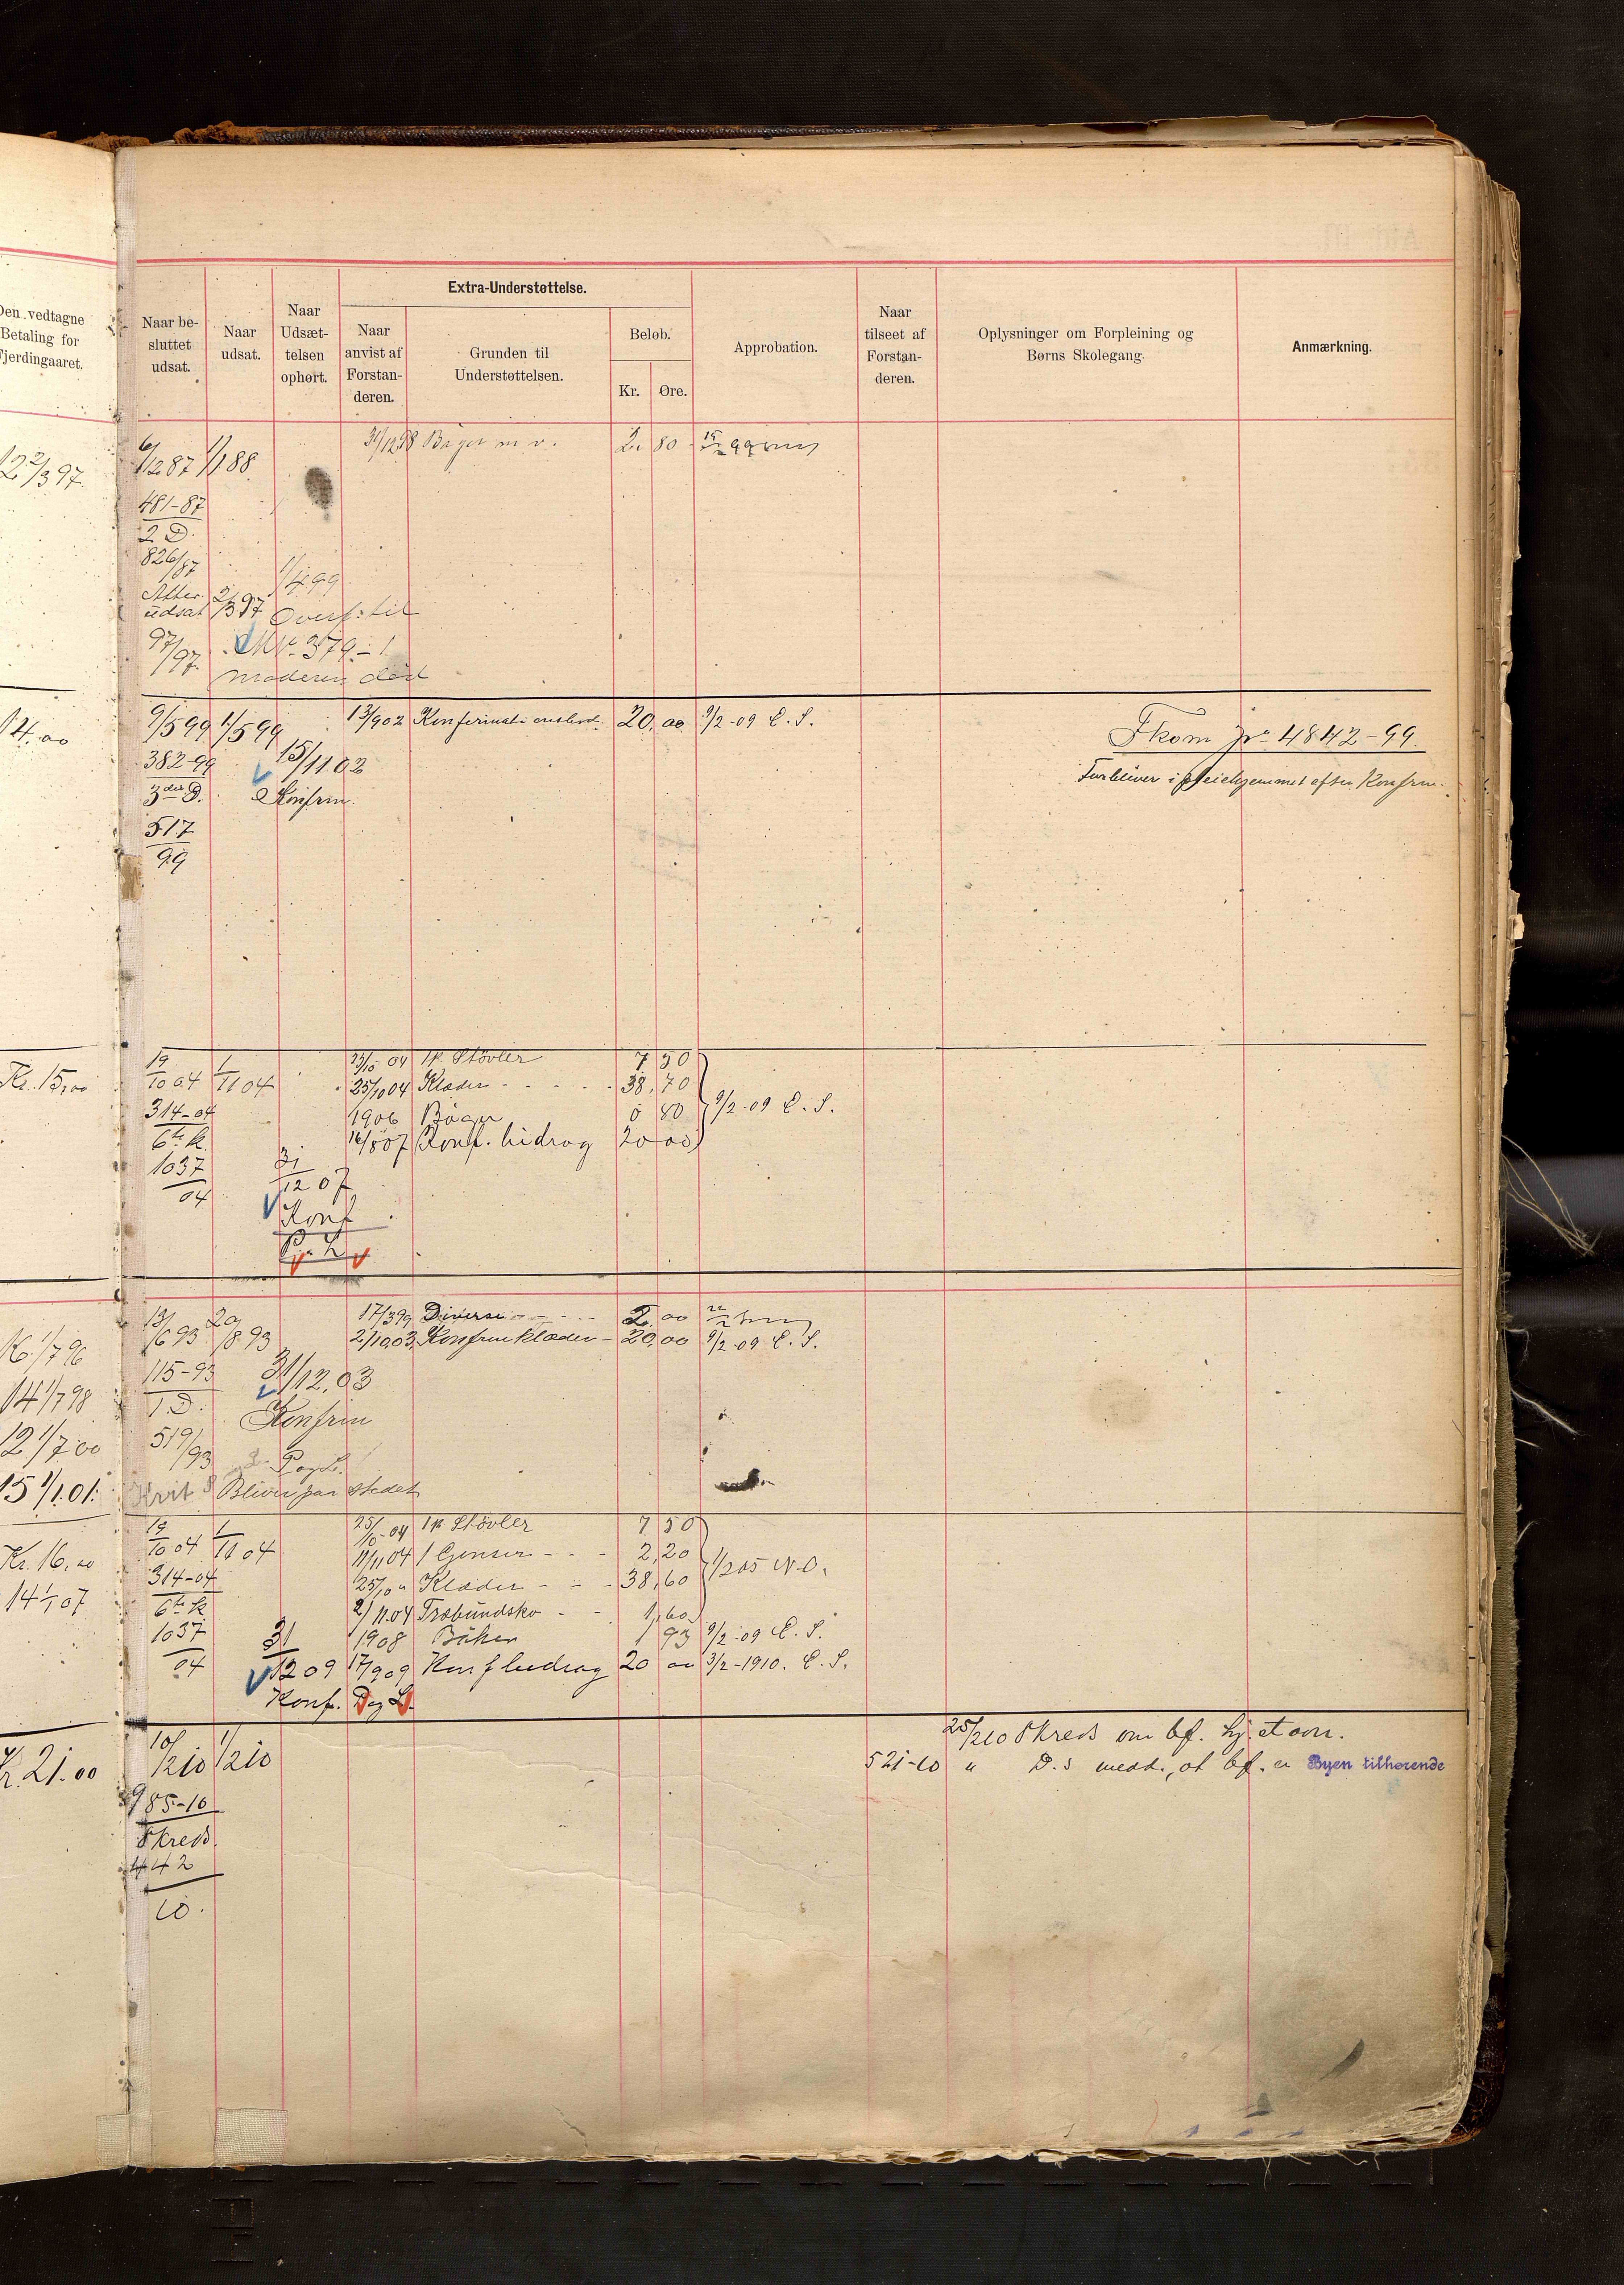 Den vedtagne
Betaling for
Fjerdingaaret.
Naar be-
sluttet
udsat.
Naar
udsat.
Naar
Udsæt-
telsen
ophørt.
Extra-Understøttelse.
Naar
anvist af
Forstan-
deren.
Grunden til
Understøttelsen.
Beløb.
Kr.
Øre.
Approbation.
Naar
tilseet af
Forstan-
deren.
Oplysninger om Forpleining og
Børns Skolegang.
Anmærkning.
6/1287 1/188 31/1298 Bøger m v. 2. 80
12 2/3 97
481-87
2 D.
826/87
1/4 99
Atter 2/3 97
udsat Overf. til
97/97. No. 379-1
moderen død
14.00
9/5 99 1/5 99 13/9 02 20.00 9/2-09 C. S.
382-99 15/11 02
3die D. Konfirm.
517
99
Fkom Jr 4842-99.
Forbliver i pleiehjemmet efter Konfrm.
Kr. 15,00
19/10 04 1/11 04 04 1 p. Støvler 7 50
25/10 04 Klæder - - - 38,70
314-04 1906 Bøger 80 9/2-09 C. S.
6te k. 07 Konf. bidrag 20 00
1037
04
31/12 07
Konf
13/6 93 20/8 93 17/3 99 Diverse - - - 2.00
16 1/7 96
2/10 03 Konfrmklæder - 20,00 9/2-09 C. S.
115-93 31/12.03
14 1/7 98
1 D. Konfrm
12 1/7 00
519/93 P og L.
15 1/1 01. Bliver paa stedet
19/10 04 1/11 04 25/10-04 1 p. Støvler 7 50
Kr. 16,00
11/11 04 1 Genser - - - 2,20
314-04 25/10 " Klæder - - - 38,60 1/2 05 N.O.
14 1/1 07
6te k 2/11 04 Træbundsko - - 1,60
1037 1908 Bøker 1 93 9/2-09 C. S.
04 31/12 09 17/9 09 Konf bidrag 20 00 3/2-1910. C. S.
Konf. P og L.
Kr. 21.00
10/2 10 1/2 10
985-10
Skreds.
442
10.
25/2 10 Skreds om bf. hj. et ovn.
521-10 " D.s medd., at bf. er Byen tilhørende